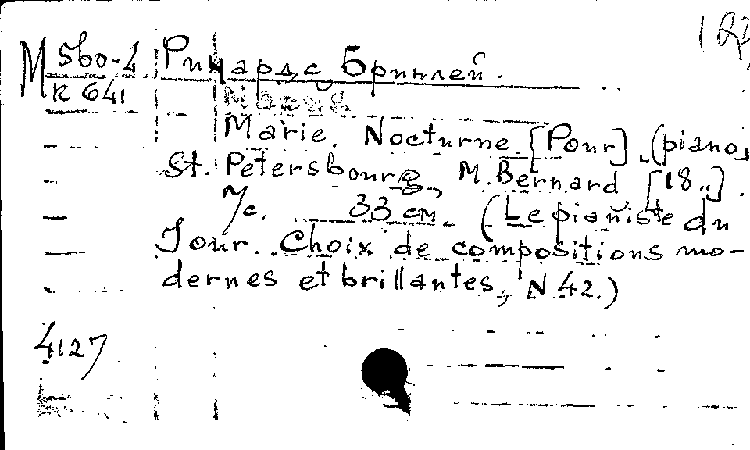 М 560-4 Ричардс, Бринлей.
R 641
Marie. Nocturne [Pour] (piano)
St. Petersbourg, M. Bernard [18..].
7 c. 33 см. (Le pianiste du
Jour. Choix de compositions mo-
dernes et brillantes, N 42.)
4127